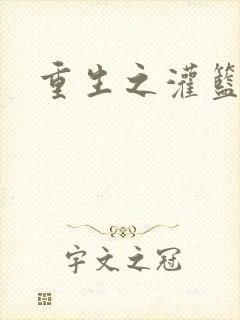 重生之灌籃
宇文之冠